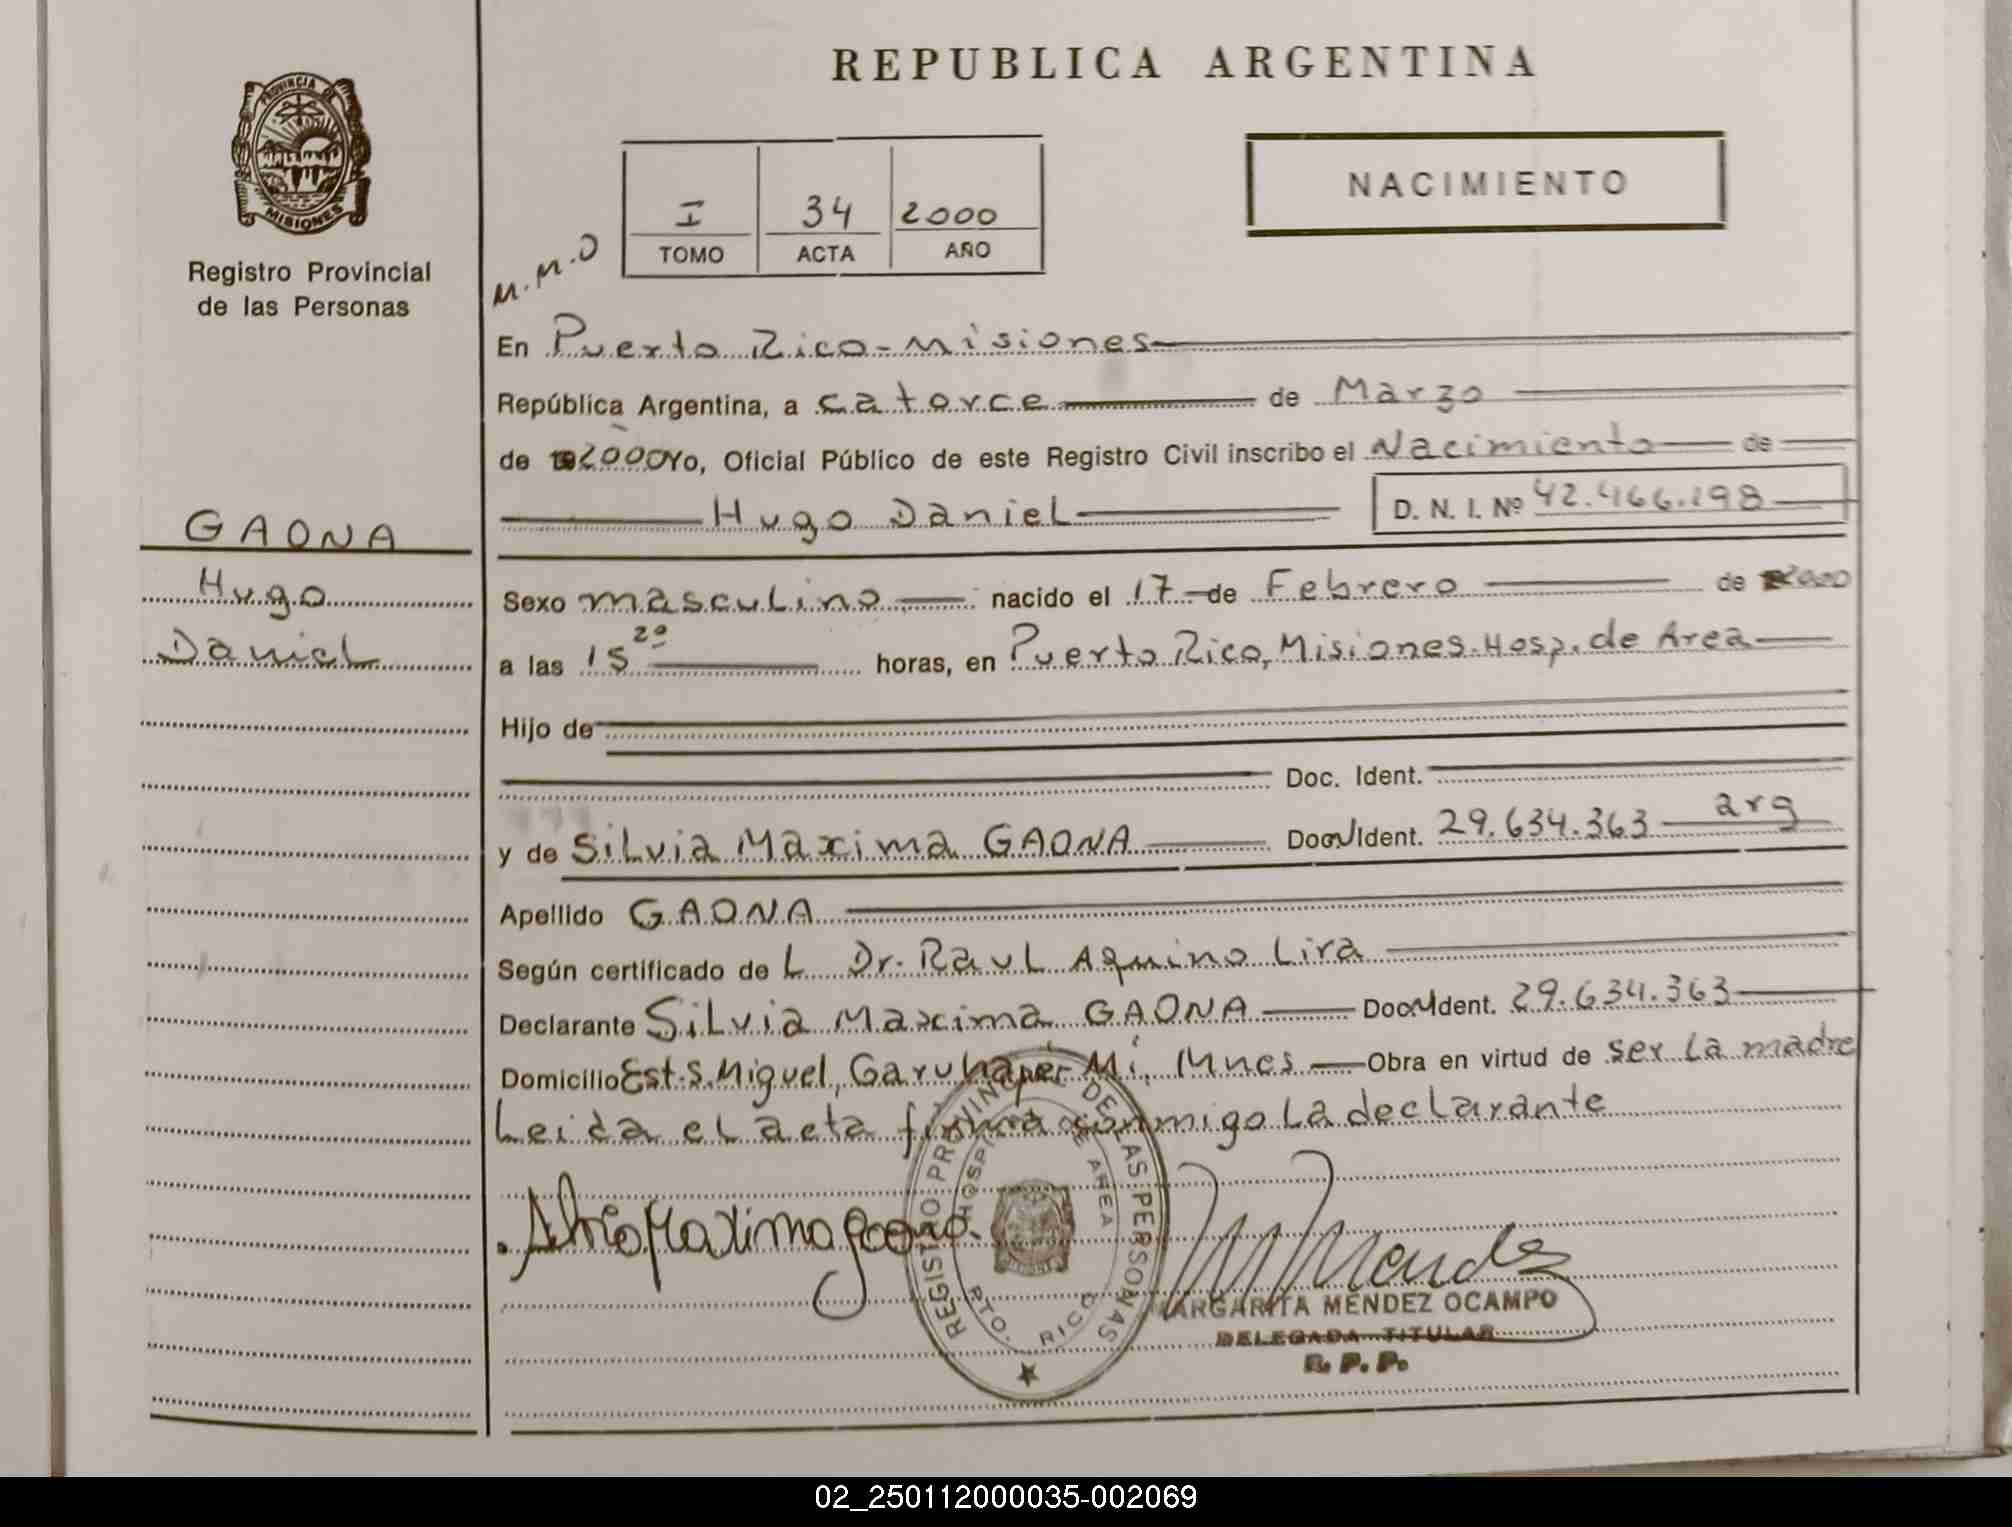 REPUBLICA ARGENTINA
PROVINCIA DE
MISIONES
Registro Provincial
de las Personas
NACIMIENTO
I 34 2000
TOMO ACTA AÑO
M.M.O
En Puerto Rico-Misiones
República Argentina, a catorce de Marzo
de 2000 Yo, Oficial Público de este Registro Civil inscribo el Nacimiento de
Hugo Daniel D. N. I. Nº 42.466.198
GAONA
Hugo
Daniel
Sexo masculino nacido el 17 de Febrero de 2000
a las 15 20 horas, en Puerto Rico, Misiones. Hosp. de Area
Hijo de
Doc. Ident.
y de Silvia Maxima GAONA Doc. Ident. 29.634.363 arg
Apellido GAONA
Según certificado de L Dr. Raul Aquino Lira
Declarante Silvia Maxima GAONA Doc. Ident. 29.634.363
Domicilio Est. S. Miguel, Garuhapé Mí, Mnes Obra en virtud de ser la madre
Leida el acta firma conmigo la declarante
Silvia Maxima Gaona.
REGISTRO PROVINCIAL DE LAS PERSONAS
HOSPITAL DE AREA
PTO. RICO
M Mendez
MARGARITA MENDEZ OCAMPO
DELEGADA TITULAR
R. P. P.
02_250112000035-002069